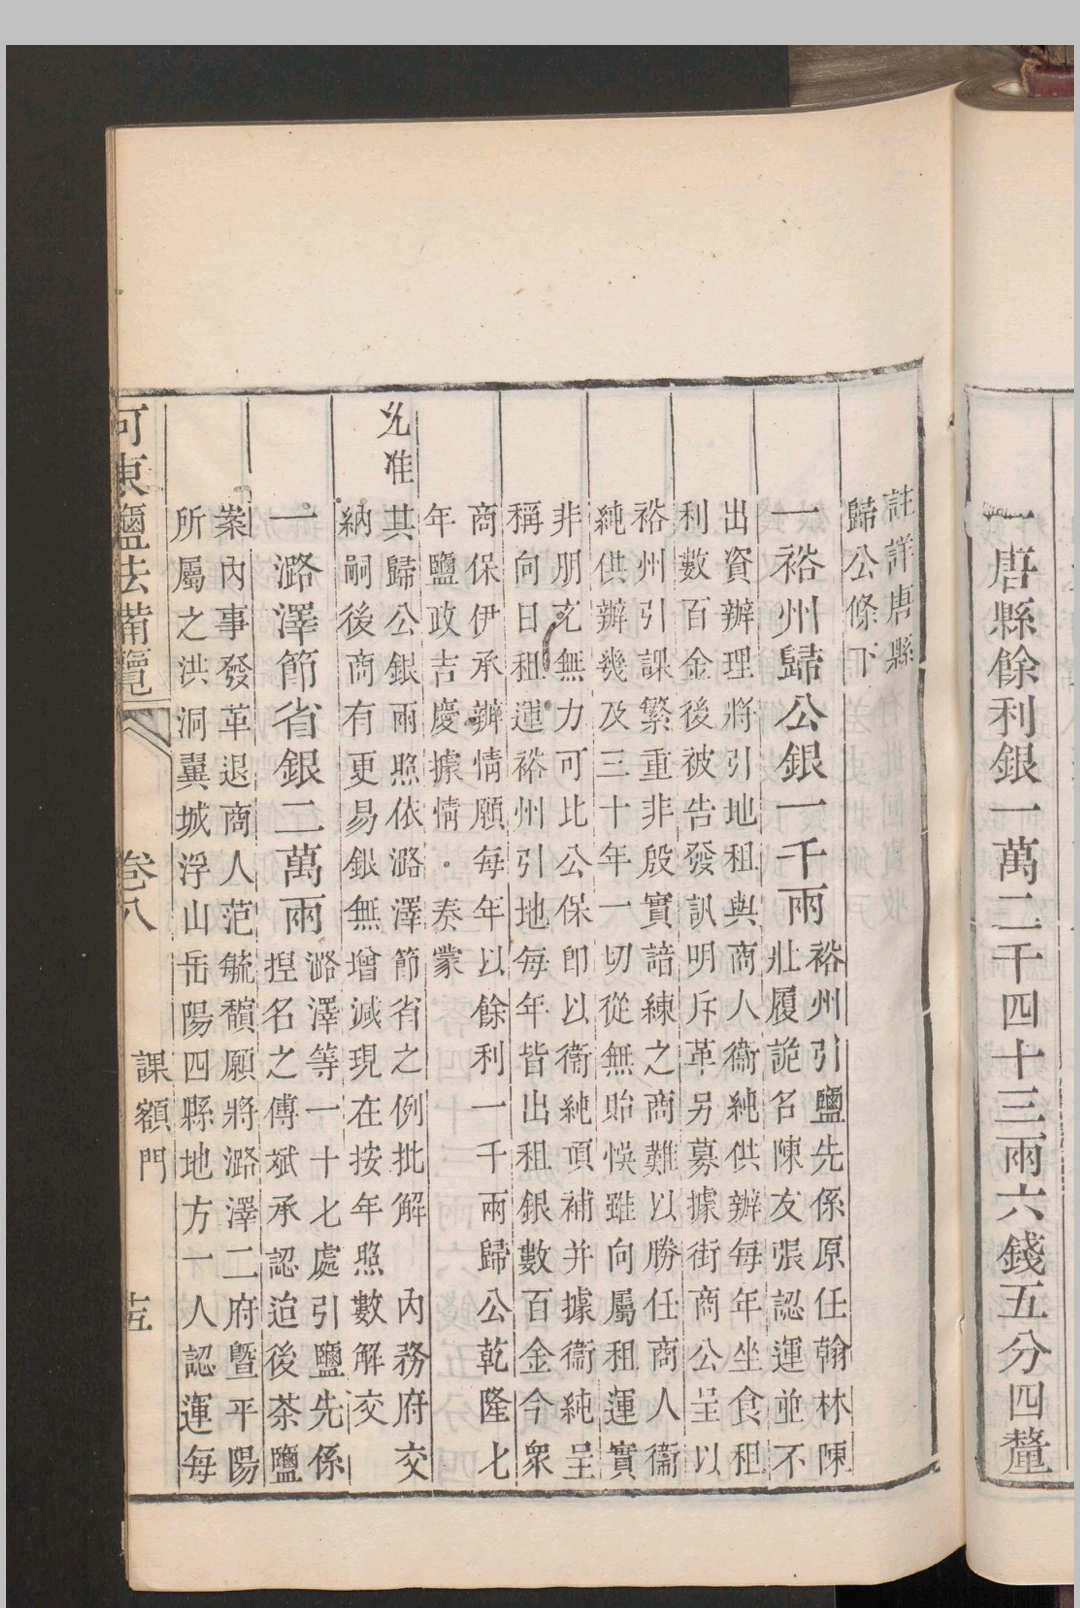 一唐縣餘利銀一萬二千四十三兩六錢五分四釐
註詳唐縣
歸公條下
一裕州歸公銀一千兩
裕州引鹽先係原任翰林陳
壯履詭名陳友張認運並不
出資辦理將引地租與商人衞純供辦每年坐食租
利數百金後被告發訊明斥革另募據街商公呈以
裕州引課繁重非殷實諳練之商難以勝任商人衞
純供辦幾及三十年一切從無貽悞雖向屬租運實
非朋充無力可比公保卽以衞純頂補并據衞純呈
稱向日租運裕州引地每年皆出租銀數百金今衆
商保伊承辦情願每年以餘利一千兩歸公乾隆七
年鹽政吉慶據情奏蒙
允准
其歸公銀兩照依潞澤節省之例批解內務府交
納嗣後商有更易銀無增減現在按年照數解交
一潞澤節省銀二萬兩
潞澤等一十七處引鹽先係
揑名之傅斌承認迨後茶鹽
案內事發革退商人范毓馪願將潞澤二府曁平陽
所屬之洪洞翼城浮山岳陽四縣地方一人認運每
河東鹽法備覽
卷八
課額門
十五